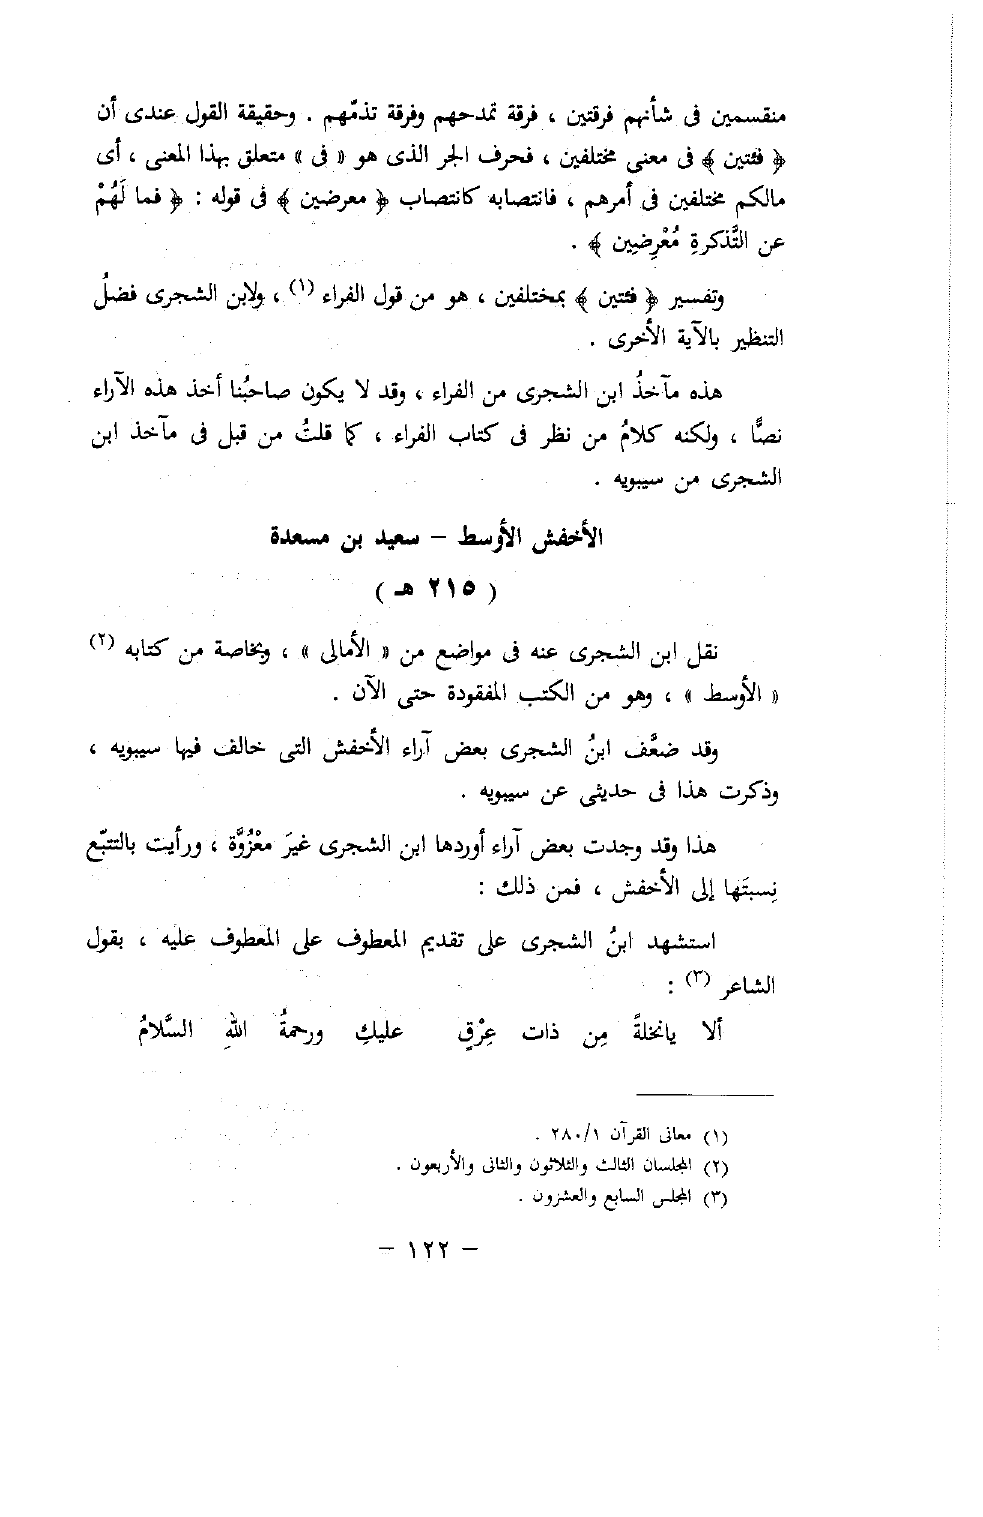 منقسمين فى شأنهم فرقتين ، فرقة تمدحهم وفرقة تذمّهم . وحقيقة القول عندى أن
﴿ فئتين ﴾ فى معنى مختلفين ، فحرف الجر الذى هو « فى » متعلق بهذا المعنى ، أى
مالكم مختلفين فى أمرهم ، فانتصابه كانتصاب ﴿ معرضين ﴾ فى قوله : ﴿ فما لَهُمْ
عن التَّذكرةِ مُعْرِضِين ﴾ .
وتفسير ﴿ فئتين ﴾ بمختلفين ، هو من قول الفراء (١) ، ولابن الشجرى فضلُ
التنظير بالآية الأخرى .
هذه مآخذُ ابن الشجرى من الفراء ، وقد لا يكون صاحبُنا أخذ هذه الآراء
نصًّا ، ولكنه كلامُ من نظر فى كتاب الفراء ، كما قلتُ من قبل فى مآخذ ابن
الشجرى من سيبويه .
الأخفش الأوسط – سعيد بن مسعدة
( ٢١٥ هـ )
نقل ابن الشجرى عنه فى مواضع من « الأمالى » ، وبخاصة من كتابه (٢)
« الأوسط » ، وهو من الكتب المفقودة حتى الآن .
وقد ضعَّف ابنُ الشجرى بعض آراء الأخفش التى خالف فيها سيبويه ،
وذكرت هذا فى حديثى عن سيبويه .
هذا وقد وجدت بعض آراء أوردها ابن الشجرى غيرَ معْزُوَّة ، ورأيت بالتتبّع
نِسبتَها إلى الأخفش ، فمن ذلك :
استشهد ابنُ الشجرى على تقديم المعطوف على المعطوف عليه ، بقول
الشاعر (٣) :
ألا يانخلةً مِن ذات عِرْقٍ عليكِ ورحمةُ اللهِ السَّلامُ
(١) معانى القرآن ٢٨٠/١ .
(٢) المجلسان الثالث والثلاثون والثانى والأربعون .
(٣) المجلس السابع والعشرون .
– ١٢٢ –